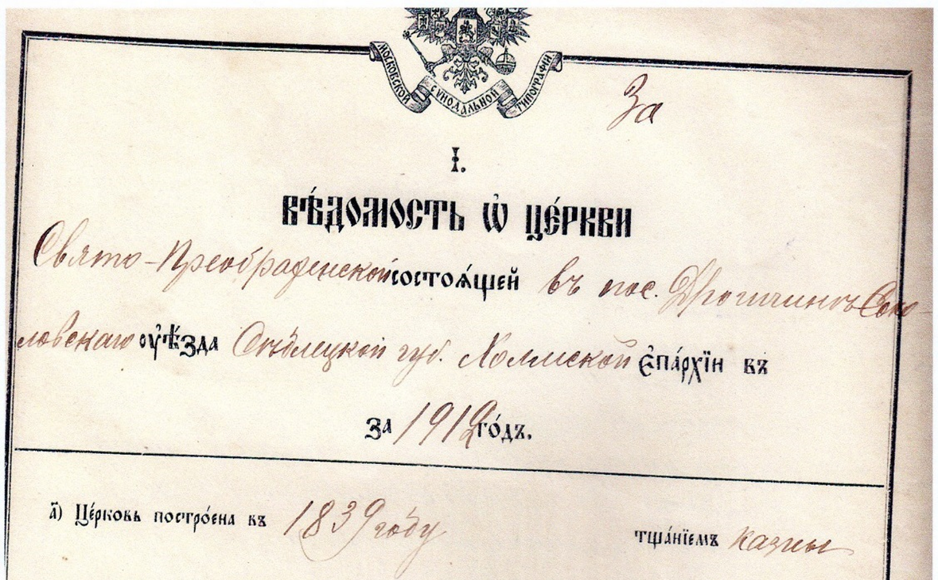 МОСКОВСКОЙ СѴНОДАЛЬНОЙ ТИПОГРАФІИ.
За
І.
ВѢ́ДОМОСТЬ Ѡ҆ ЦЕ́РКВИ
Свято-Преображенской состоѧ́щей въ пос. Дрогичинъ Соко-
ловскаго оуѣ́зда Сѣдлецкой губ. Холмской є҆па́рхїи въ
за 1912 го́дъ.
а҃) Це́рковь постро́ена въ 1839 году тща́нїемъ казны